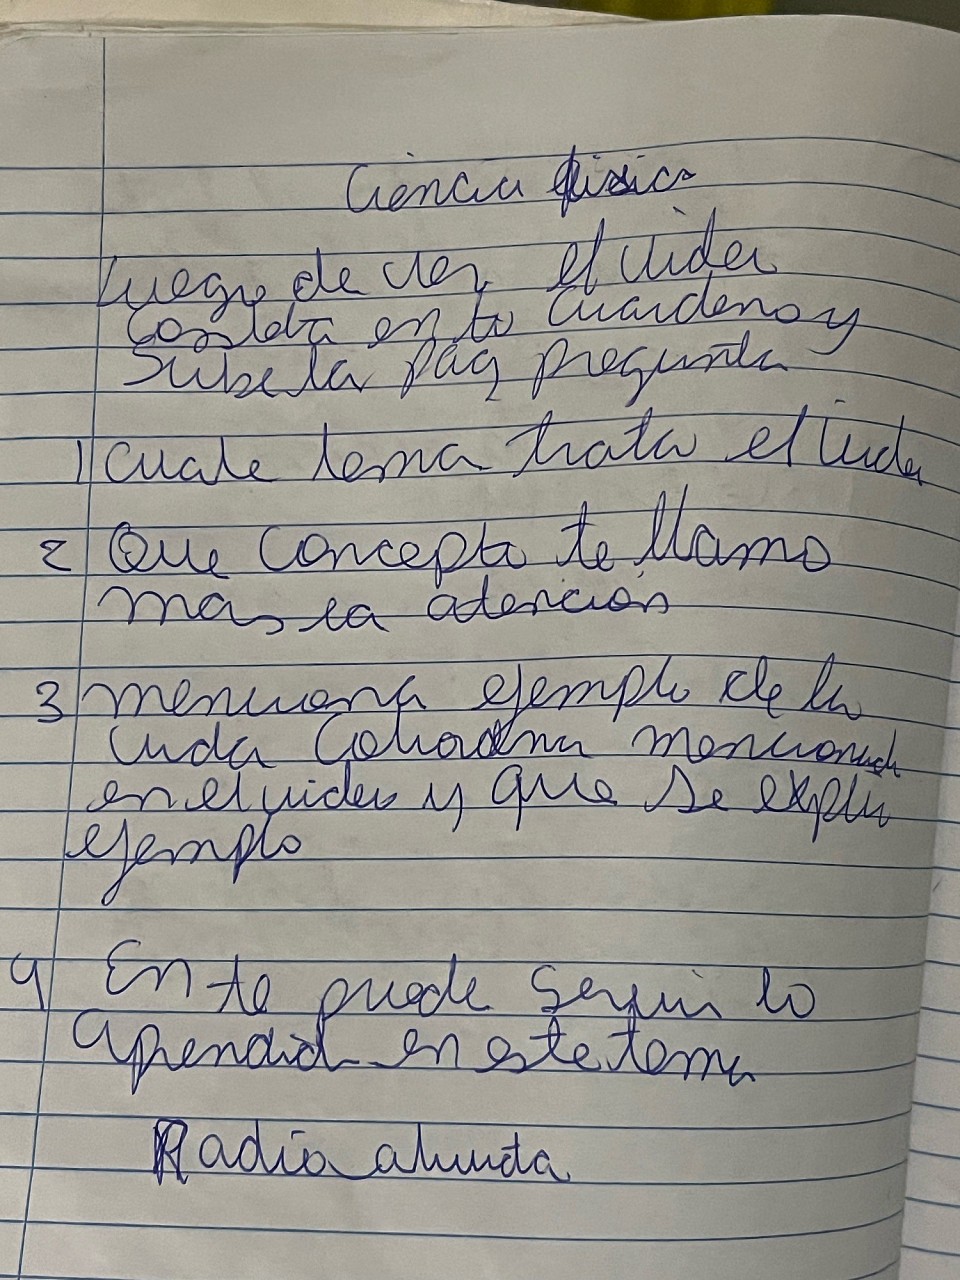 Ciencia fisica
Luego de ver el video
en tu cuarderno y
Sube la pag pregunta
1 Cuale tema trata el video
2 Que Concepto te llamo
mas la atencion
3 menciona ejemplo de la
vida Cotiodana mencionad
en el video y que se explic
ejemplo
4 En te puede Servir lo
aprendid en este tema
Radia